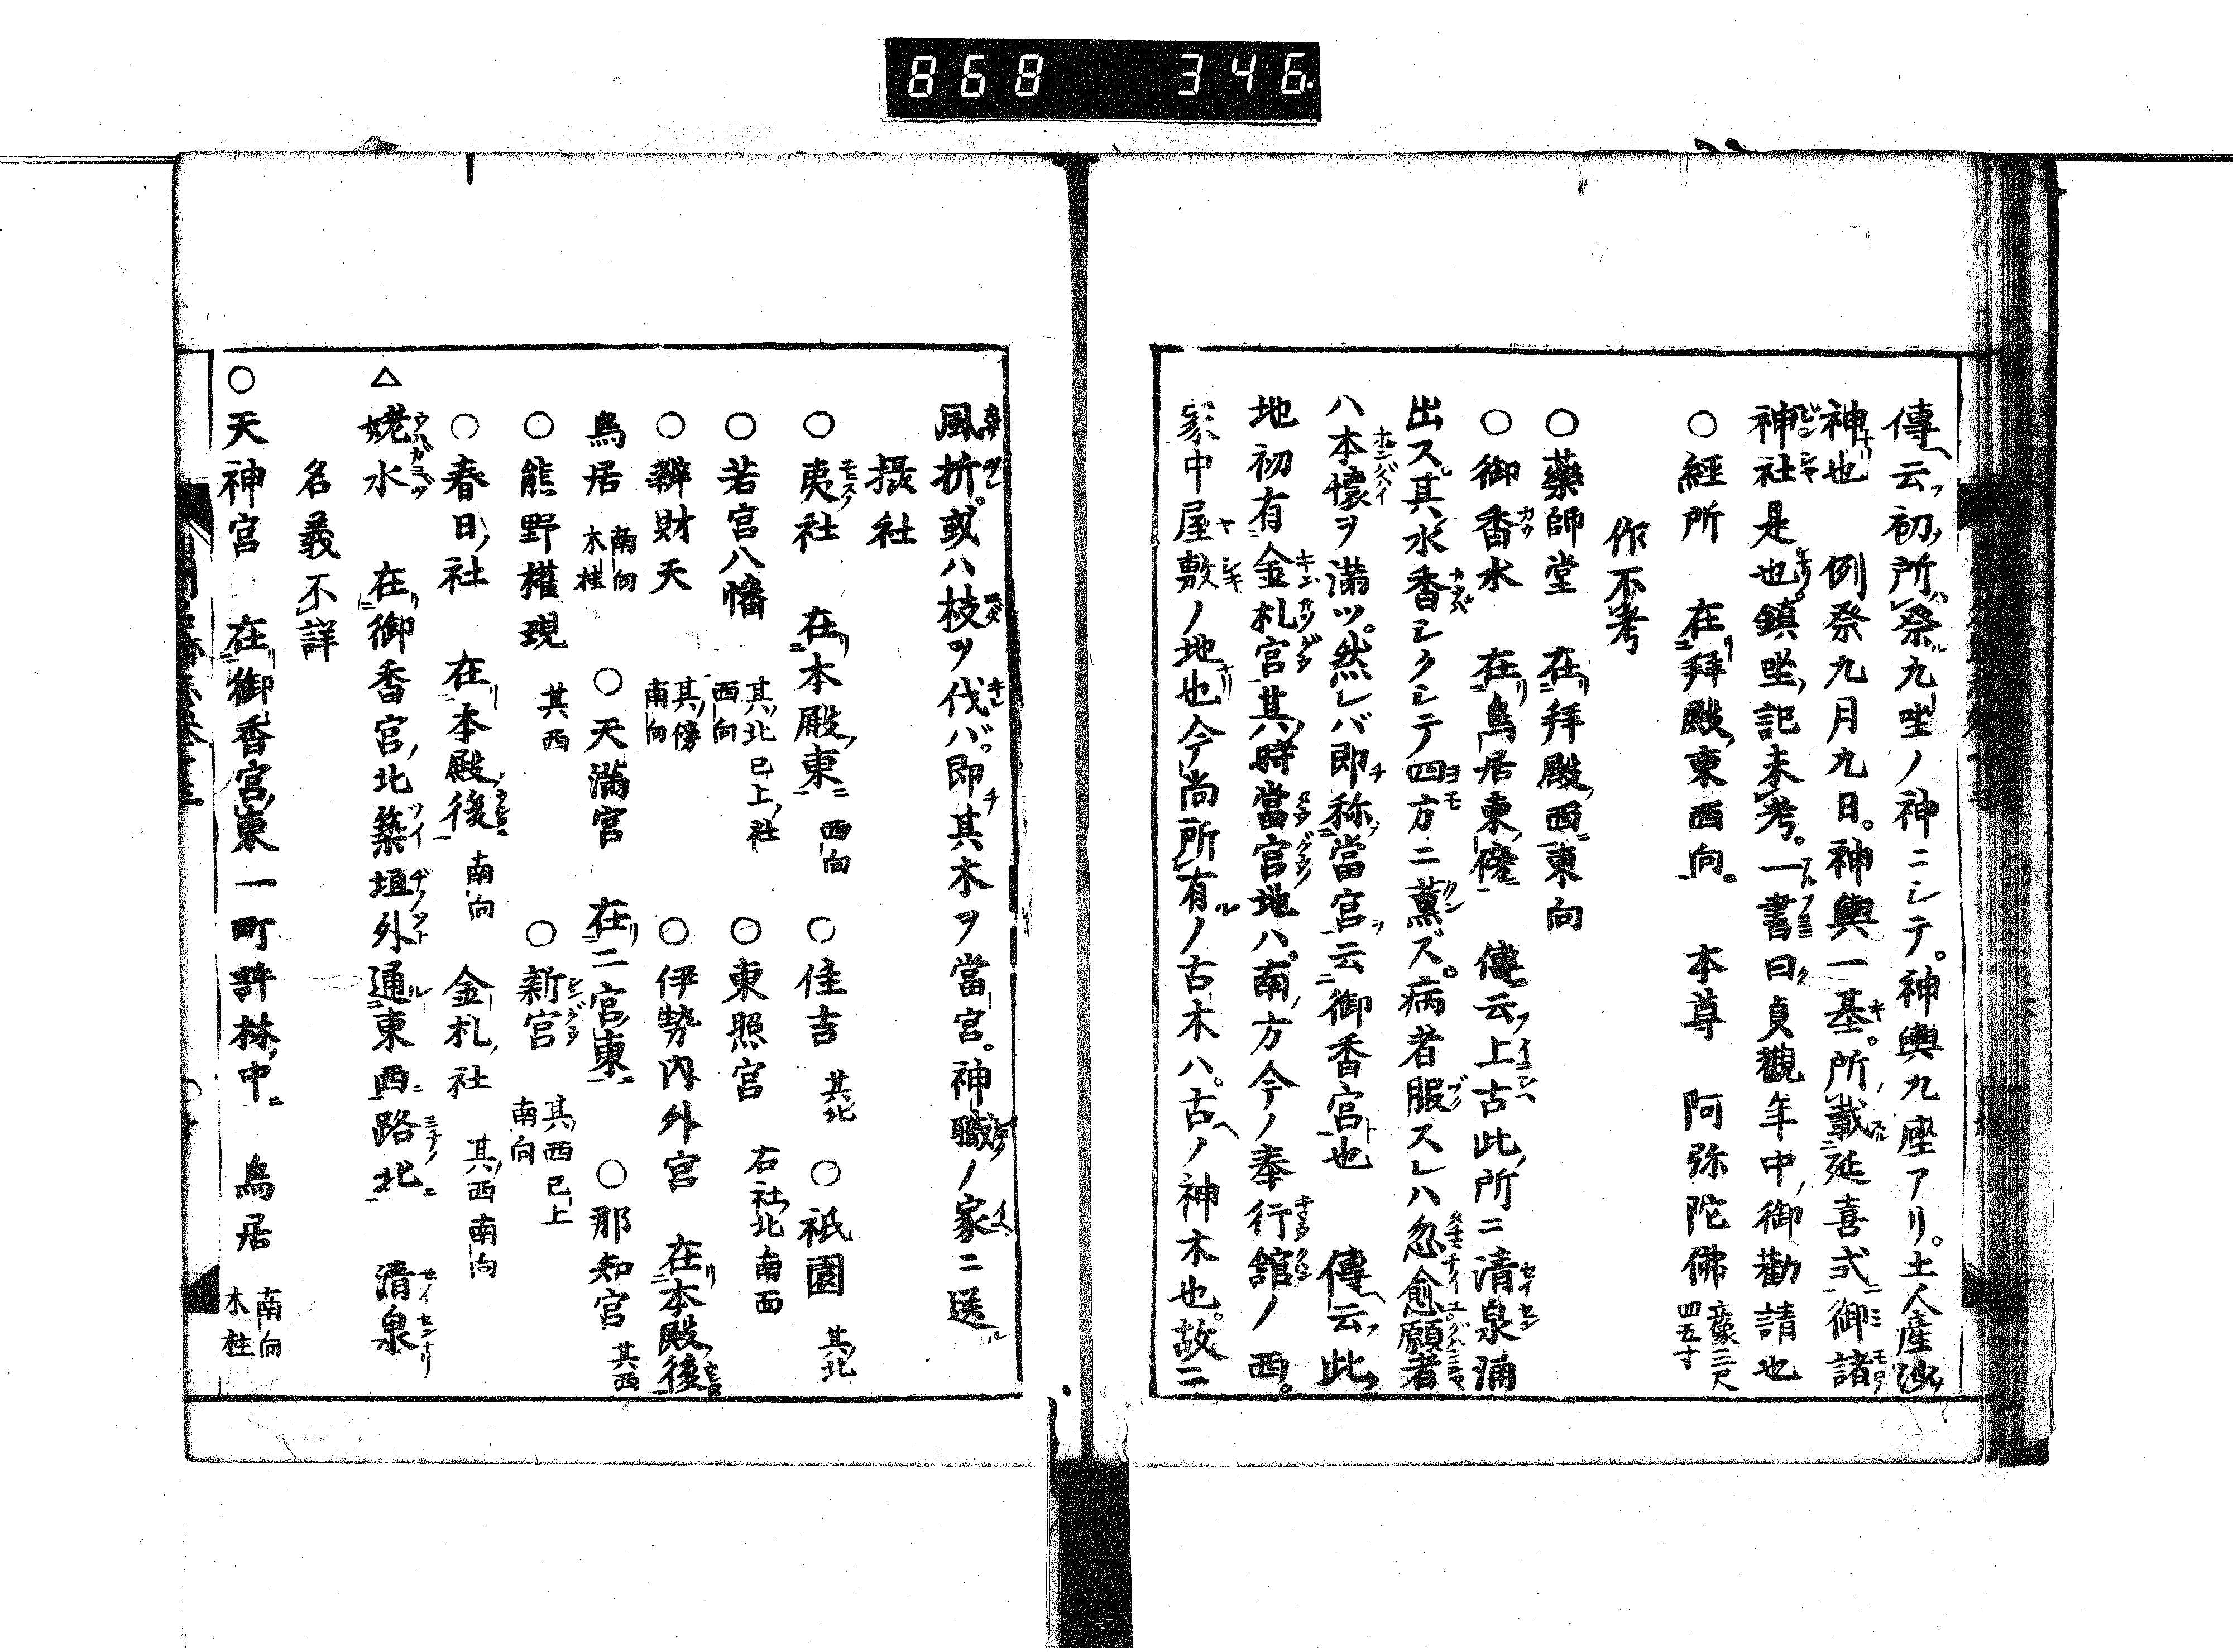 868 346
傳云初所祭九坐ノ神ニシテ。神輿九座アリ。土人産沙
神也 例祭九月九日。神輿一基。所載延喜式御諸
神社是也。鎮坐記未考。一書曰貞觀年中御勸請也
○經所 在拜殿東西向 本尊 阿弥陀佛 立像三尺四五寸
作不考
○藥師堂 在拜殿西東向
○御香水 在鳥居東傍 傳云上古此所ニ清泉涌
出ス其水香シクシテ四方ニ薫ズ。病者服スレハ忽愈願者
ハ本懷ヲ滿ツ。然レバ即称當宮云御香宮也 傳云此
地初有金札宮其時當宮地ハ。南方今ノ奉行舘ノ西。
家中屋敷ノ地也今尚所有ノ古木ハ。古ノ神木也。故ニ
風折。或ハ枝ヲ伐バ即其木ヲ當宮。神職ノ家ニ送
摂社
○夷社 在本殿東 西向 ○住吉 其北 ○祇園 其北
○若宮八幡 其北已上社西向 ○東照宮 右社北南面
○辨財天 其傍南向 ○伊勢内外宮 在本殿後
鳥居 南向木柱 ○天滿宮 在二宮東 ○那知宮 其西
○熊野權現 其西 ○新宮 其西已上南向
○春日社 在本殿後 南向 金札社 其西南向
△姥水 在御香宮北築垣外通東西路北 清泉
名義不詳
○天神宮 在御香宮東一町許林中 鳥居 南向木柱